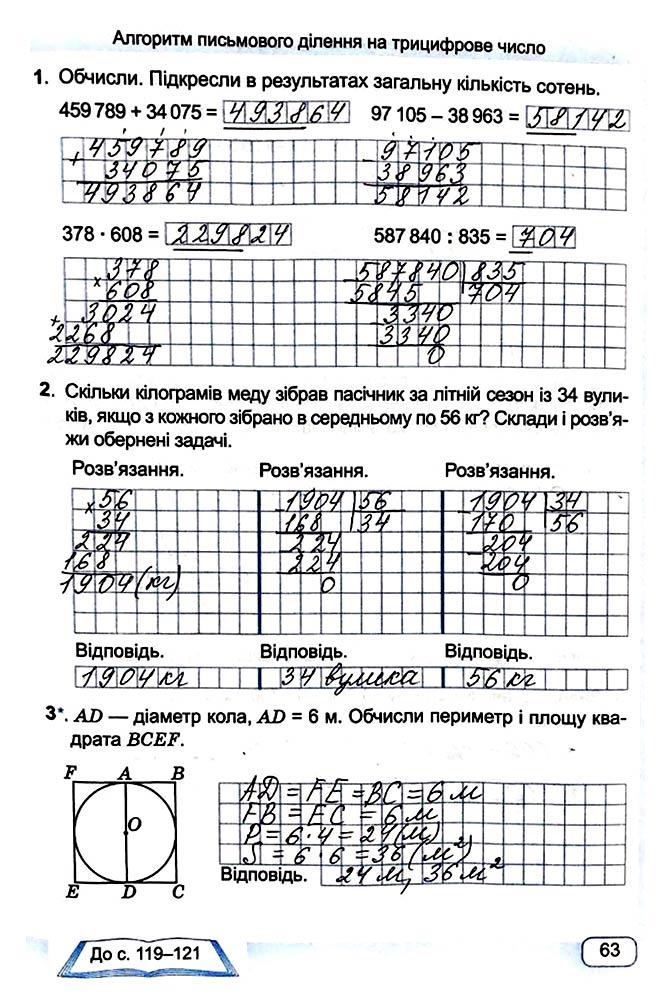 Алгоритм письмового ділення на трицифрове число
1. Обчисли. Підкресли в результатах загальну кількість сотень.
459 789 + 34 075 = 493864 97 105 – 38 963 = 58142
459789 97105
+ 34075 – 38963
493864 58142
378 · 608 = 229824 587 840 : 835 = 704
378 587840 | 835
× 608 5845 704
3024 3340
+ 2268 3340
229824 0
2. Скільки кілограмів меду зібрав пасічник за літній сезон із 34 вули-
ків, якщо з кожного зібрано в середньому по 56 кг? Склади і розв’я-
жи обернені задачі.
Розв’язання. Розв’язання. Розв’язання.
× 56 1904 | 56 1904 | 34
34 168 34 170 56
224 224 204
168 224 204
1904 (кг) 0 0
Відповідь. Відповідь. Відповідь.
1904 кг 34 вулика 56 кг
3*. AD — діаметр кола, AD = 6 м. Обчисли периметр і площу ква-
драта BCEF.
F A B
O
E D C
AD = FE = BC = 6 м
FB = EC = 6 м
P = 6 · 4 = 24 (м)
S = 6 · 6 = 36 (м²)
Відповідь. 24 м, 36 м²
До с. 119–121
63